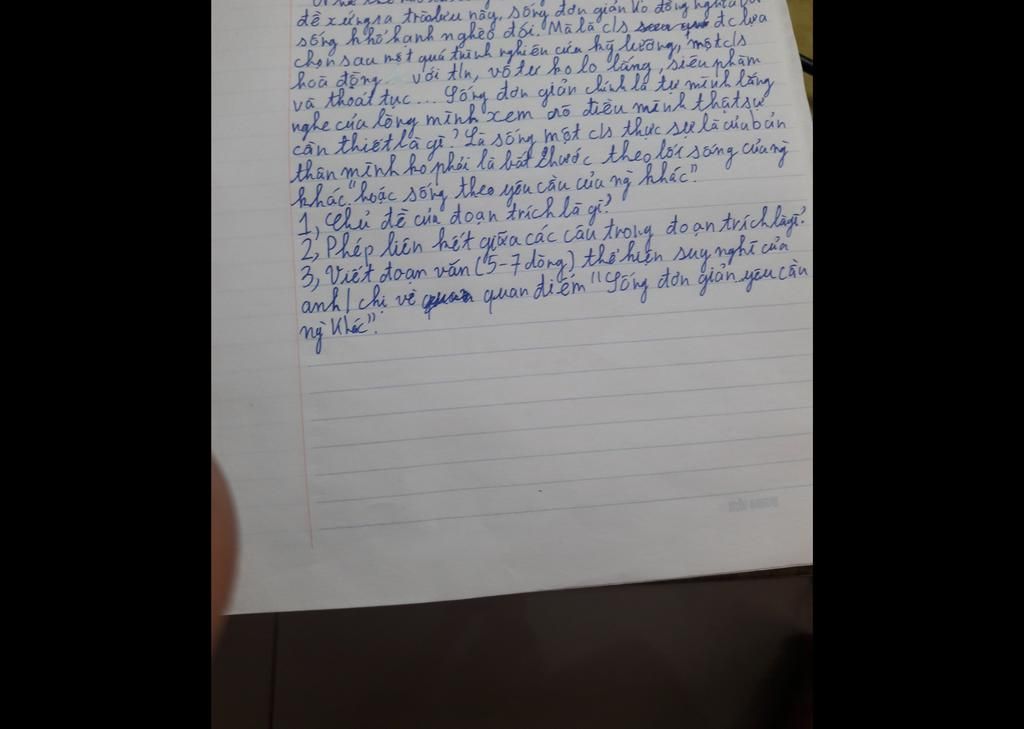 đề xướng ra trào lưu này, sống đơn giản ko đồng nghĩa với
sống khổ hạnh nghèo đói. Mà là c/s đc lựa
chọn sau một quá trình nghiên cứu kỹ lưỡng, một c/s
hoà đồng với t/n, vô tư ko lo lắng, siêu phàm
và thoát tục... Sống đơn giản chính là tự mình lắng
nghe cửa lòng mình xem rõ điều mình thật sự
cần thiết là gì? Là sống một c/s thực sự là của bản
thân mình ko phải là bắt chước theo lối sống của ng
khác "hoặc sống theo yêu cầu của ng khác".
1, Chủ đề của đoạn trích là gì?
2, Phép liên kết giữa các câu trong đoạn trích là gì?
3, Viết đoạn văn (5-7 dòng) thể hiện suy nghĩ của
anh/chị về quan điểm "Sống đơn giản yêu cầu
ng khác".